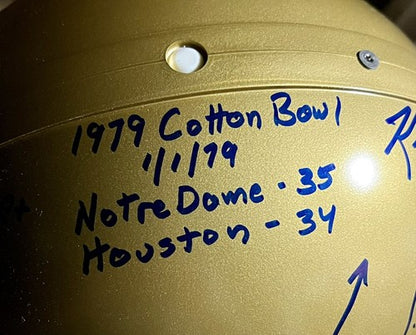 1979 Cotton Bowl
1/1/79
Notre Dame - 35
Houston - 34